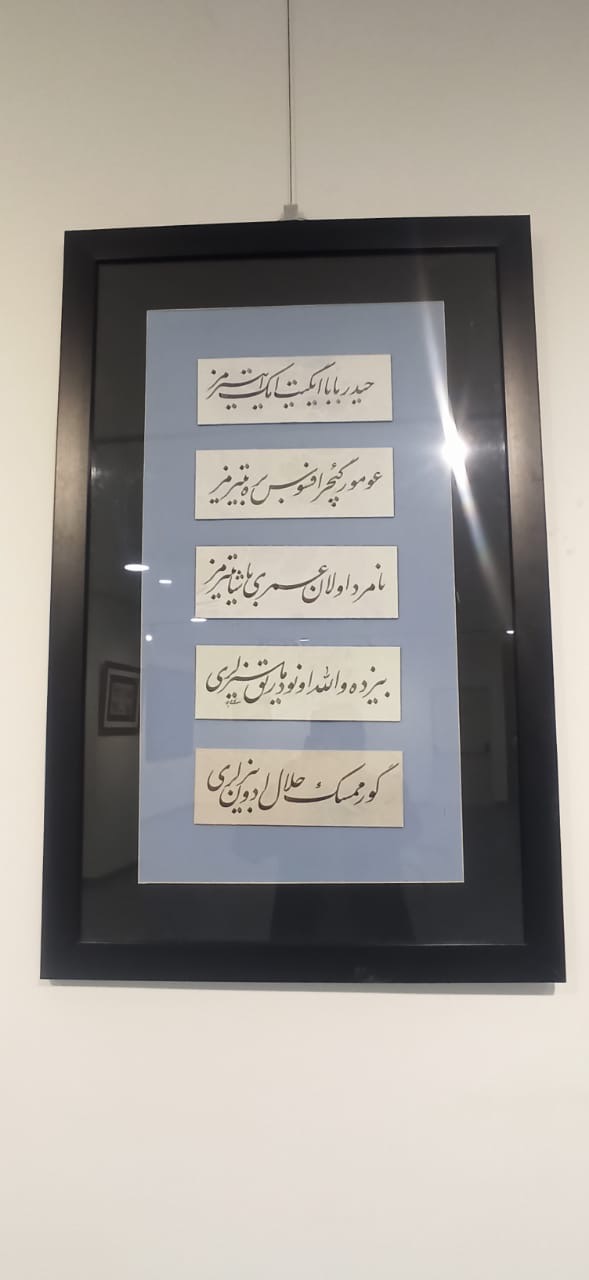 حیدر بابا ایگیت امک ایتیرمز
عومور گئچر افسوس بره بیتیرمز
نامرد اولان عمری باشا یتیرمز
بیزده والله اونوتماریق سیزلری
گورممسک حلال ادون بیزلری